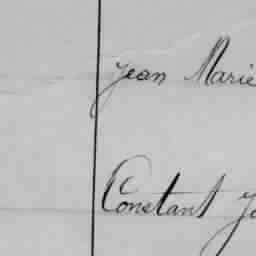 Jean Marie
Constant